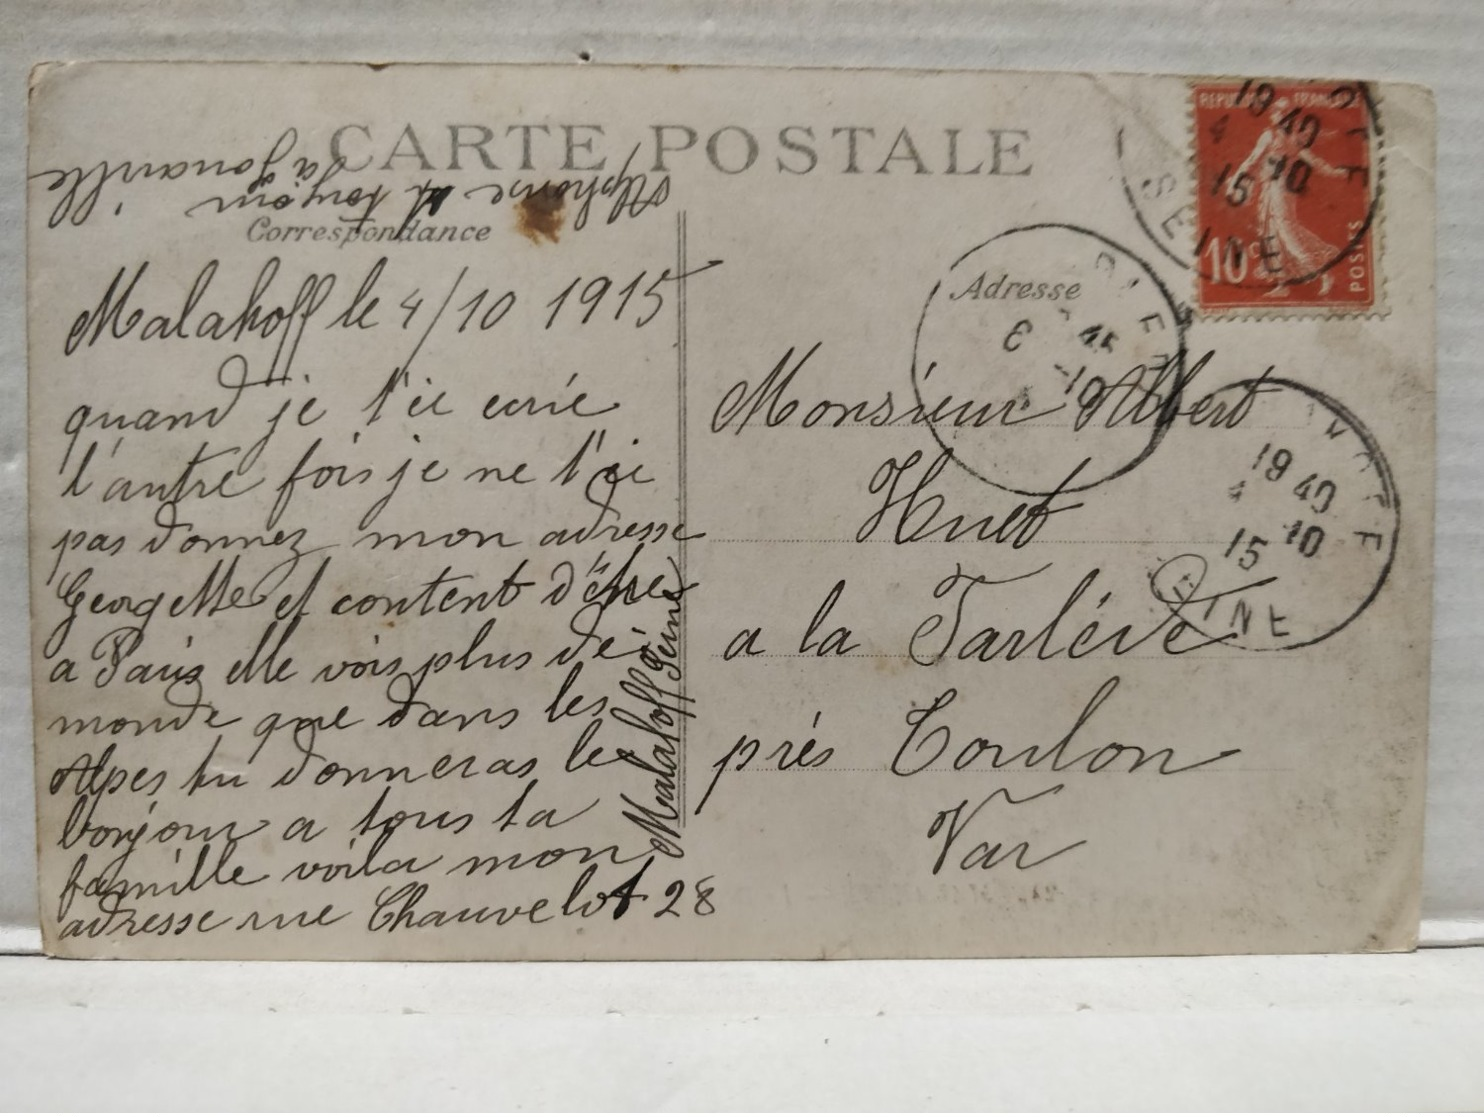 CARTE POSTALE
Alphonse et toujour
a Jonville
Correspondance
Malakoff le 4/10 1915
quand je t'ai ecrie
l'autre fois je ne t'ai
pas donnez mon adresse
Georgette et content d'être
a Paris elle vois plus de
monde que dans les
Alpes tu donneras le
bonjour a tous ta
famille voila mon
adresse rue Chauvelot 28
Malakoff Seine
Adresse
Monsieur Albert
Huet
a la
près Toulon
Var
REPUBLIQUE FRANÇAISE
10c
POSTES
19 40
4 10
15
SEINE
19 40
4 10
15